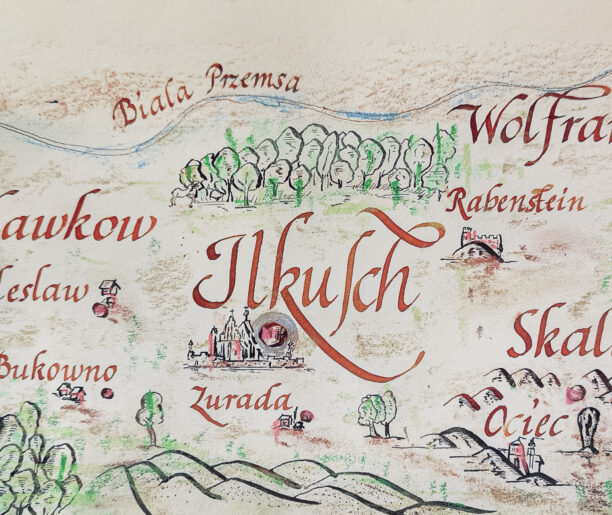 Biala Przemsa
Wolfra
Rabenstein
awkow
Ilkusch
leslaw
Skal
Bukowno
Zurada
Ociec